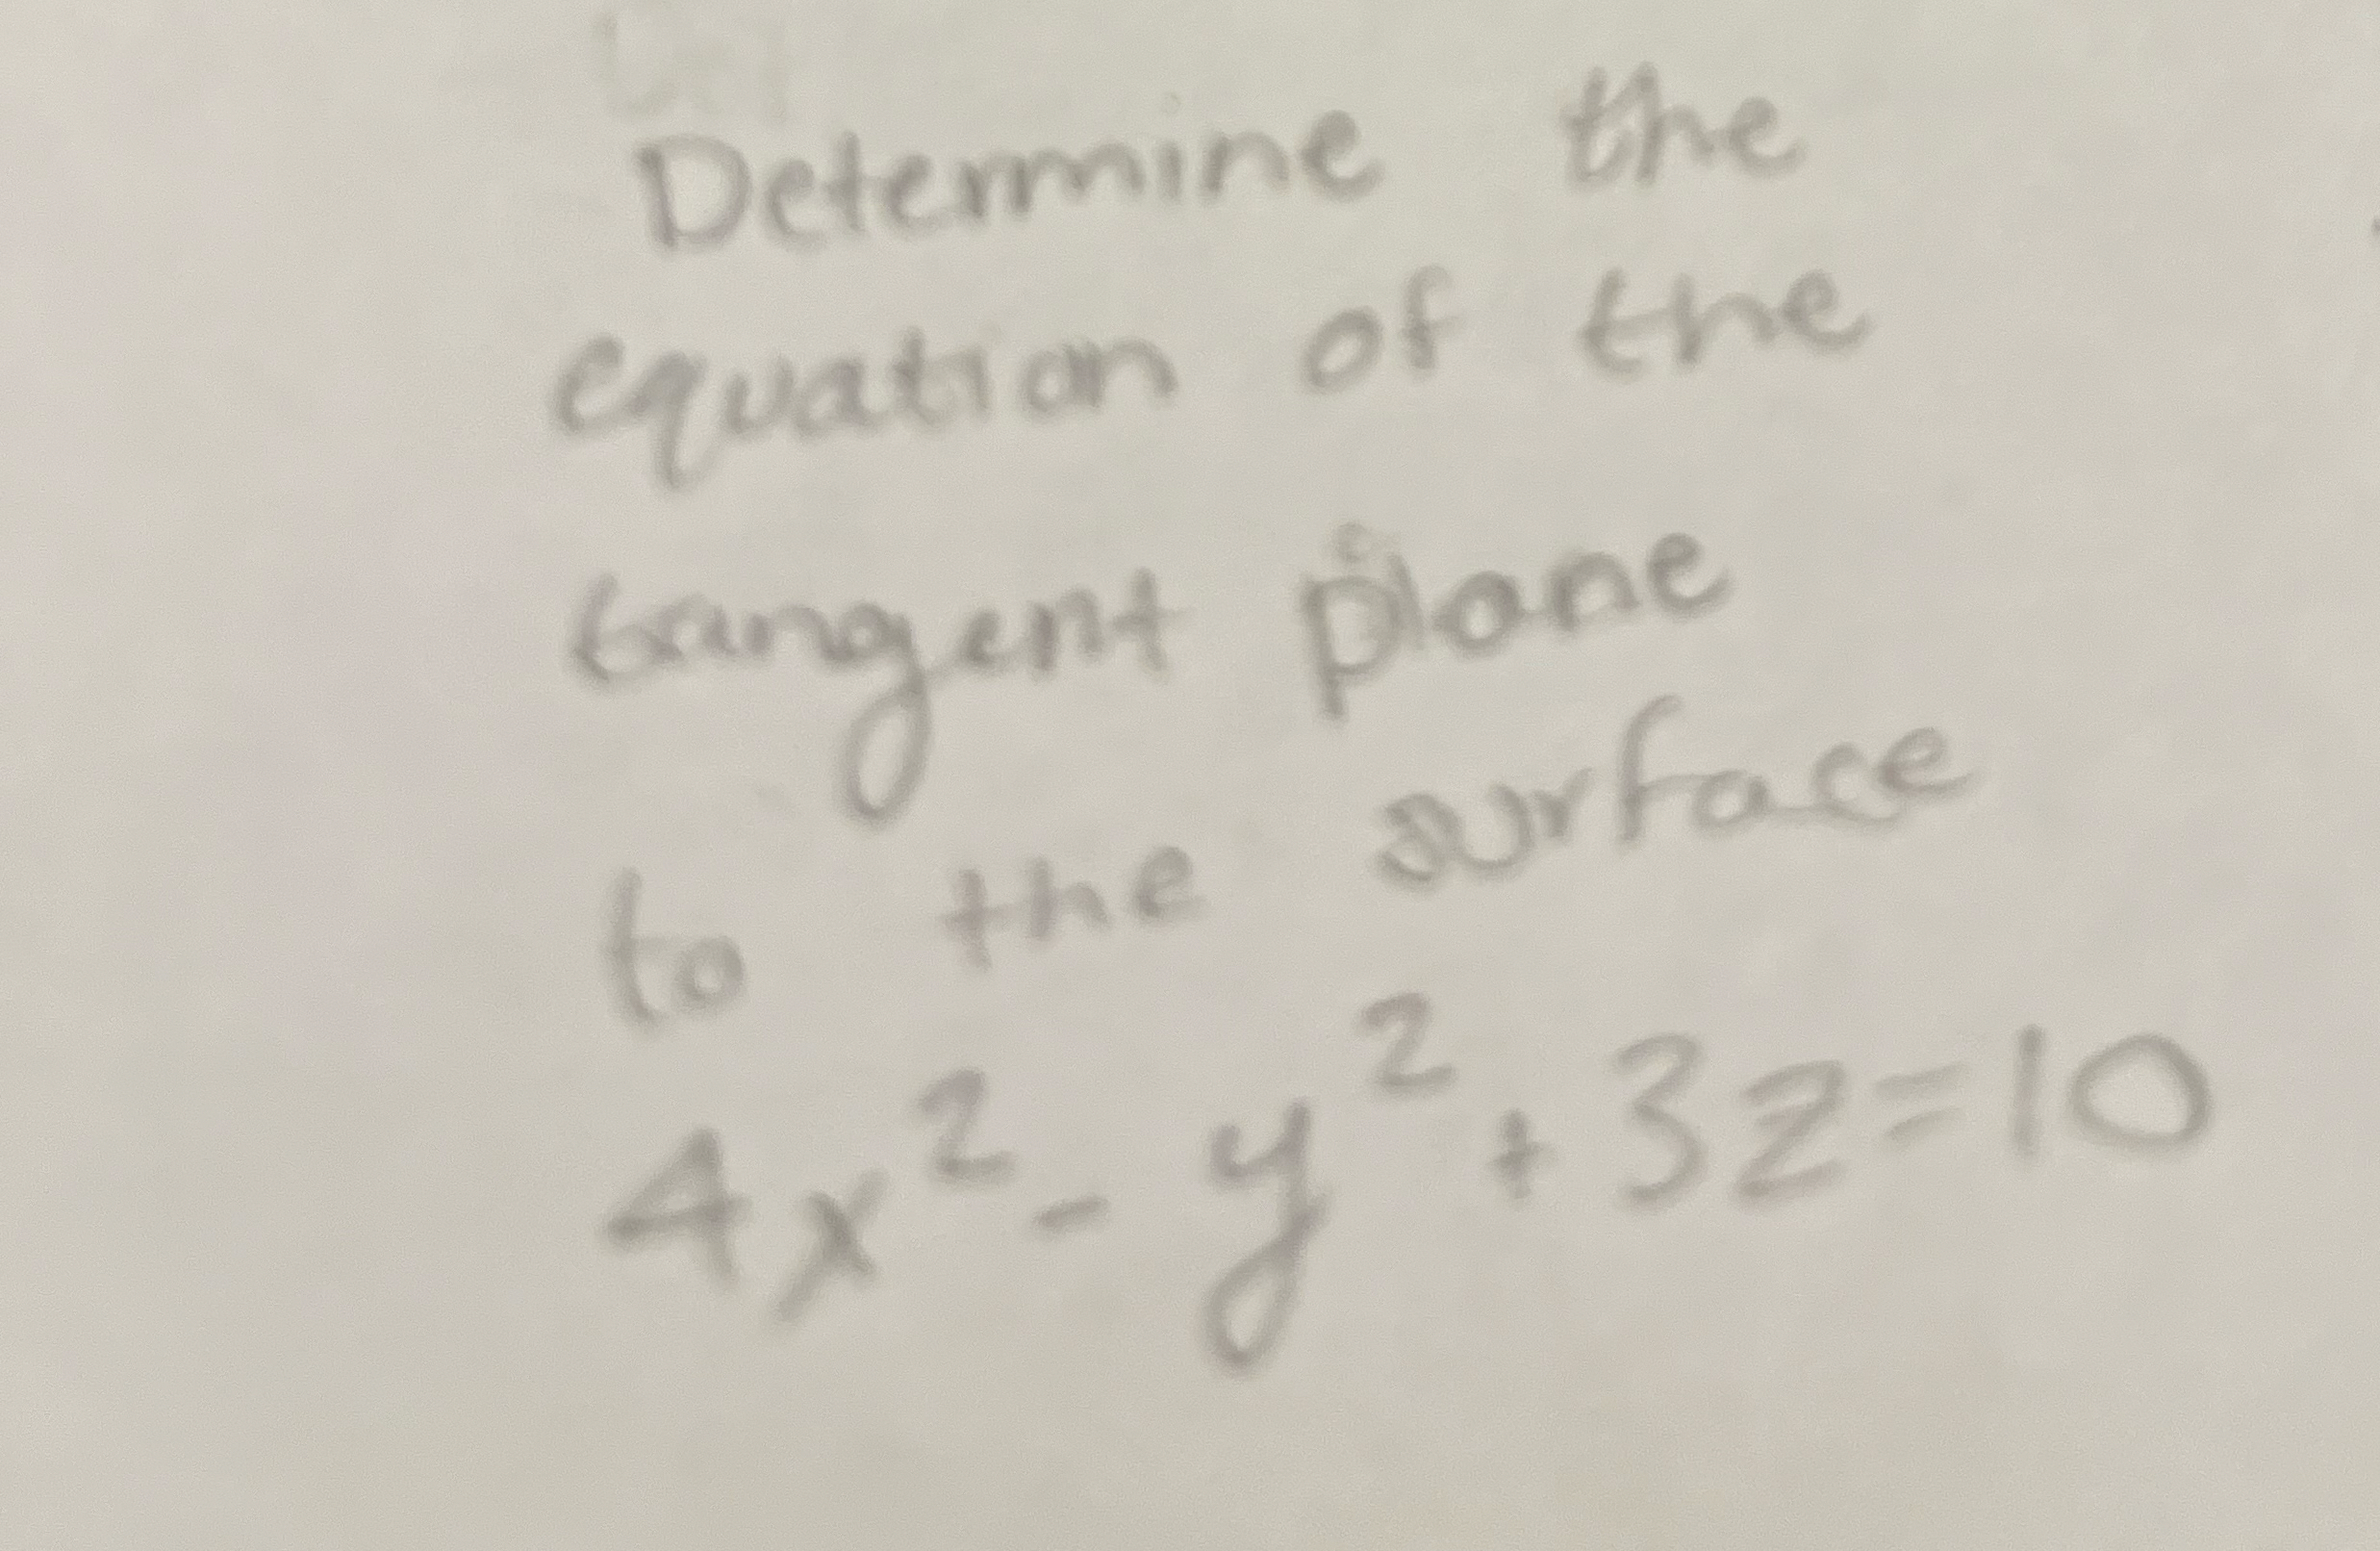 Determine the
equation of the
tangent plane
to the surface
4x² - y² + 3z = 10